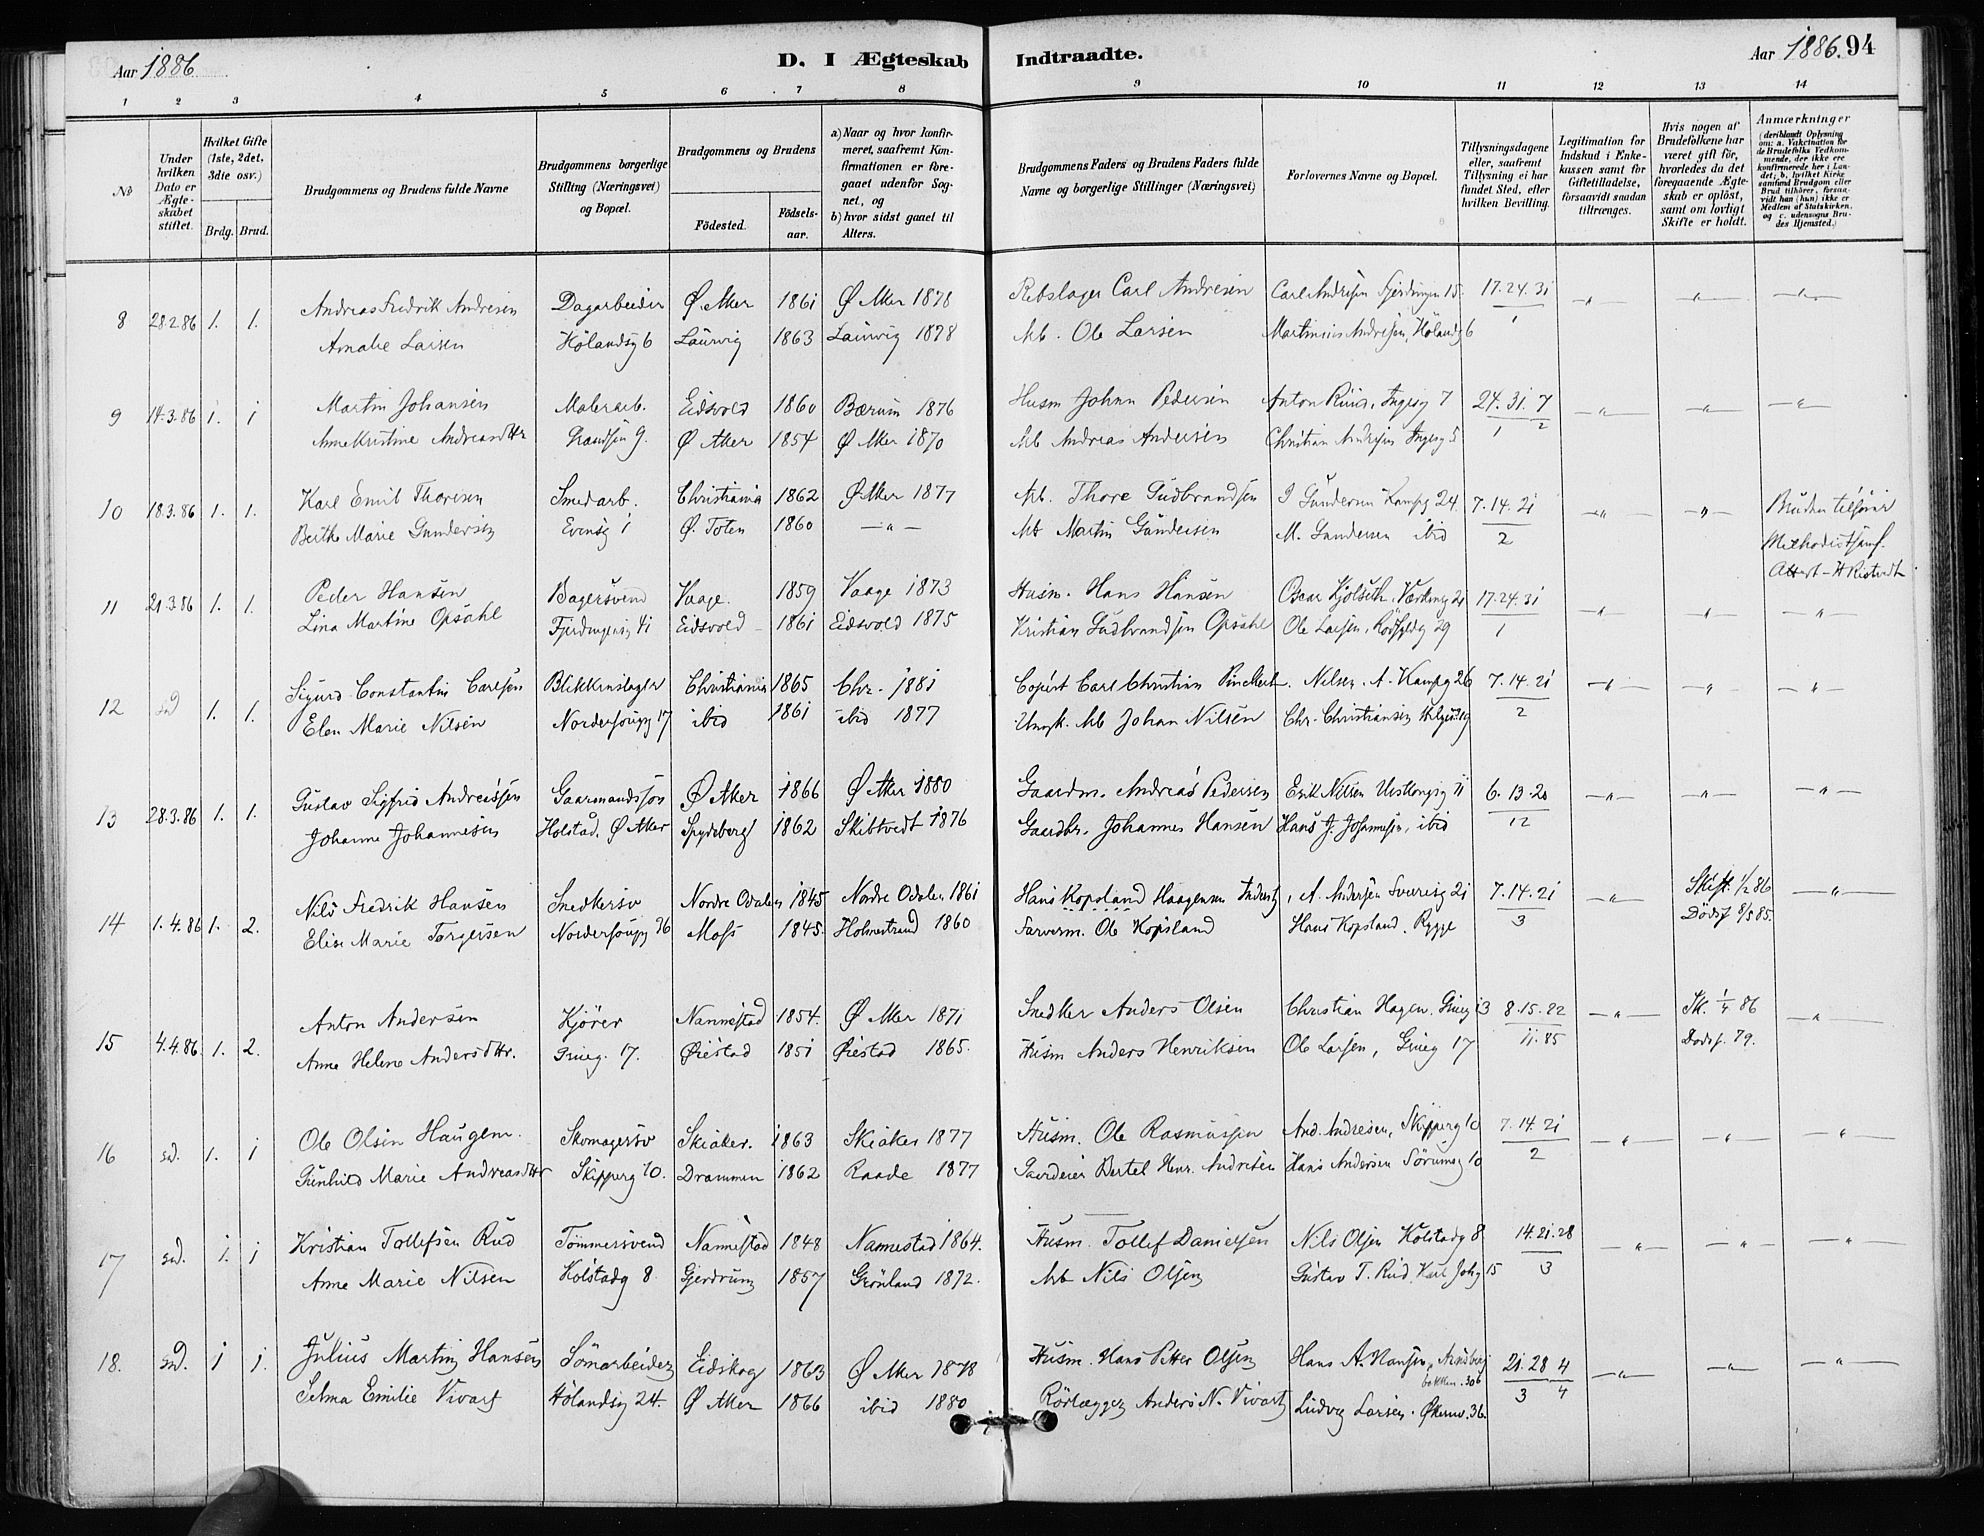 Aar 1886. D. I Ægteskab Indtraadte. Aar 1886. 94
1 2 3 4 5 6 7 8 9 10 11 12 13 14
No
Under hvilken Dato er Ægteskabet stiftet.
Hvilket Gifte (1ste, 2det, 3die osv.)
Brdg. Brud.
Brudgommens og Brudens fulde Navne
Brudgommens borgerlige Stilling (Næringsvei) og Bopæl.
Brudgommens og Brudens
Födested. Födselsaar.
a) Naar og hvor konfirmeret, saafremt Konfirmationen er foregaaet udenfor Sognet, og
b) hvor sidst gaaet til Alters.
Brudgommens Faders og Brudens Faders fulde Navne og borgerlige Stillinger (Næringsvei)
Forlovernes Navne og Bopæl.
Tillysningsdagene eller, saafremt Tillysning ei har fundet Sted, efter hvilken Bevilling.
Legitimation for Indskud i Enkekassen samt for Giftetilladelse, forsaavidt saadan tiltrænges.
Hvis nogen af Brudefolkene har været gift för, hvorledes da det foregaaende Ægteskab er oplöst, samt om lovligt Skifte er holdt.
Anmærkninger
(deriblandt Oplysning om: a. Vakcination for de Brudefolks Vedkommende, der ikke ere konfirmerede her i Landet; b. hvilket Kirkesamfund Brudgom eller Brud tilhörer, forsaavidt han (hun) ikke er Medlem af Statskirken, og c. udensogns Brudes Hjemsted.)
8 28.2.86 1. 1. Andreas Fredrik Andresen Dagarbeider Ø. Aker 1861 Ø Aker 1878 Rebslager Carl Andresen Carl Andresen Fjerdingen 15. 17.24.31 —"— —"— —"—
Amalie Larsen Hölandsg 6 Laurvig 1863 Laurvig 1878 Arb. Ole Larsen Martinius Andresen, Hölandsg 6 1
9 14.3.86 1. 1 Martin Johansen Malerarb. Eidsvold 1860 Bærum 1876 Husm Johan Pedersen Anton Ingesg 7 24.31. 7 —"— —"— —"—
Anne Kristine Andreasdttr 9. Ø Aker 1854 Ø Aker 1870 Arb Andreas Andersen Christian Andresen Ingesg 5 1 2
10 18.3.86 1. 1. Karl Emil Thoresen Smedarb. Christiania 1862 Ø Aker 1877 Arb. Thore Gudbrandsen I Gundersen Kampg 24. 7.14.21 —"— —"— Bruden tilhörer
Berthe Marie Gundersen Evensg 1 Ø. Toten 1860 —"— Arb Martin Gundersen M. Gundersen ibid 2 Methodistsamf.
Attest
11 21.3.86 1. 1. Peder Hansen Bagersvend Vaage. 1859 Vaage 1873 Husm. Hans Hansen Oscar Kjölseth, 21 17.24.31 —"— —"— —"—
Lina Martine Opsahl Fjerdingensg 41 Eidsvold 1861 Eidsvold 1875 Kristian Gudbrandsen Opsahl Ole Larsen, 29 1
12 sd 1. 1. Sigurd Constantin Carlsen Blikkenslager Christiania 1865 Chr. 1881 Carl Christian Nilsen. A. Kampg 26 7.14.21 —"— —"— —"—
Elen Marie Nilsen Norderhougg 17 ibid 1861 ibid 1877 Arb Johan Nilsen Chr. Christiansen 19 2
13 28.3.86 1. 1. Gustav Sigfrid Andreassen Gaarmandssön Ø Aker 1866 Ø Aker 1880 Gaardm. Andreas Pedersen Erik Nilsen 11 6.13.20 —"— —"— —"—
Johanne Johannesen Holstad, Ø Aker Spydeberg 1862 Skibtvedt 1876 Gaardbr. Johannes Hansen Hans J. Johannesen, ibid 12
14 1.4.86 1. 2. Nils Fredrik Hansen Snedkersv Nordre Odalen 1845 Nordre Odalen 1861 Hans Kopsland Haagensen A. Andersen Sverresg 21 7.14.21 —"— Skift. 1/2 86 —"—
Elise Marie Torgersen Norderhougg 26 Moss 1845. Holmestrand 1860 Farverm. Ole Kopsland Hans Kopsland, Rygge 3 Dödsf 8/5 85.
15 4.4.86 1. 2. Anton Andersen Kjörer Nannestad 1854. Ø Aker 1871 Snedker Anders Olsen Christian Hagen. 13 8.15.22 —"— Sk. 1/4 86 —"—
Anne Helene Andersdttr. 17. Øiestad 1851 Øiestad 1865. Husm Anders Henriksen Ole Larsen, 17 11.85 Dödsf. 79.
16 sd. 1. 1 Ole Olsen Haugen. Skomagersv Skiaker. 1863 Skiaker 1877 Husm. Ole Rasmussen And. Andresen, Skipperg 10 7.14.21 —"— —"— —"—
Gunhild Marie Andreasdttr Skipperg 10. Drammen 1862 Raade 1877 Gardeier Bertel Henr. Andresen Hans Andersen Sörumsg 10 2
17 sd. 1. 1 Kristian Tollefsen Rud Tömmersvend Nannestad 1848 Nannestad 1864. Husm. Tollef Danielsen Nils Olsen Kolstadg 8 14.21.28 —"— —"— —"—
Anne Marie Nilsen Kolstadg 8. Gjerdrum 1857 Grönland 1872. Arb Nils Olsen Gustav T. Rud, Karl Johg 15 3
18. sd. 1 1. Julius Martin Hansen Jernarbeider Eidskog 1863 Ø Aker 1878 Husm. Hans Petter Olsen Hans A. Hansen, bakken. 306 21.28 4 —"— —"— —"—
Selma Emilie Vivast Hölandsg 24. Ø Aker 1866 ibid 1880 Rörlægger Anders N. Vivast Ludvig Larsen. Økernv. 36. 3 4